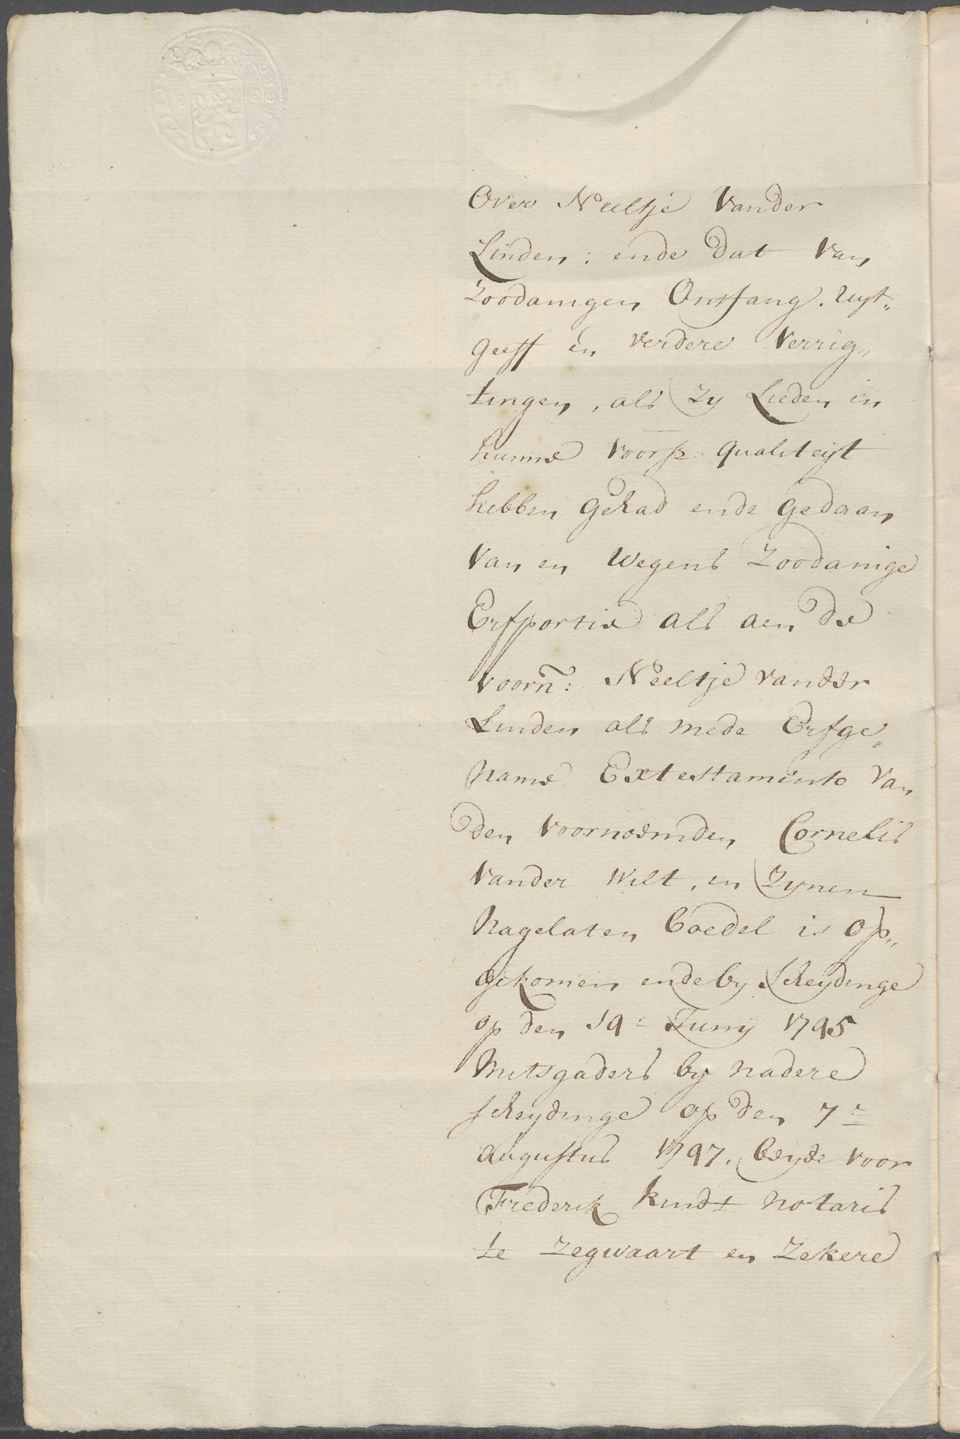 Over Neeltje Vander
Linden: ende dat Van
Zoodanigen Ontfang. uyt„
geeff en verdere Verrig„
tingen, als Zy Lieden in
hunne voorsz qualiteijt
hebben gehad ende gedaan
Van en Wegens Zoodanige
Erfportie als aen de
voorñ: Neeltje vander
Linden als mede Erfge„
Name Extestamento Van
den voornoemden Cornelis
Vander Wilt, en Zynen
Nagelaten boedel is op„
gekomen ende by scheydinge
op den 19e Junij 1795
Mitsgaders by nadere
scheydinge op den 7e
augustus 1797. beyde voor
Frederik kindt notaris
te Zegwaart en Zekere